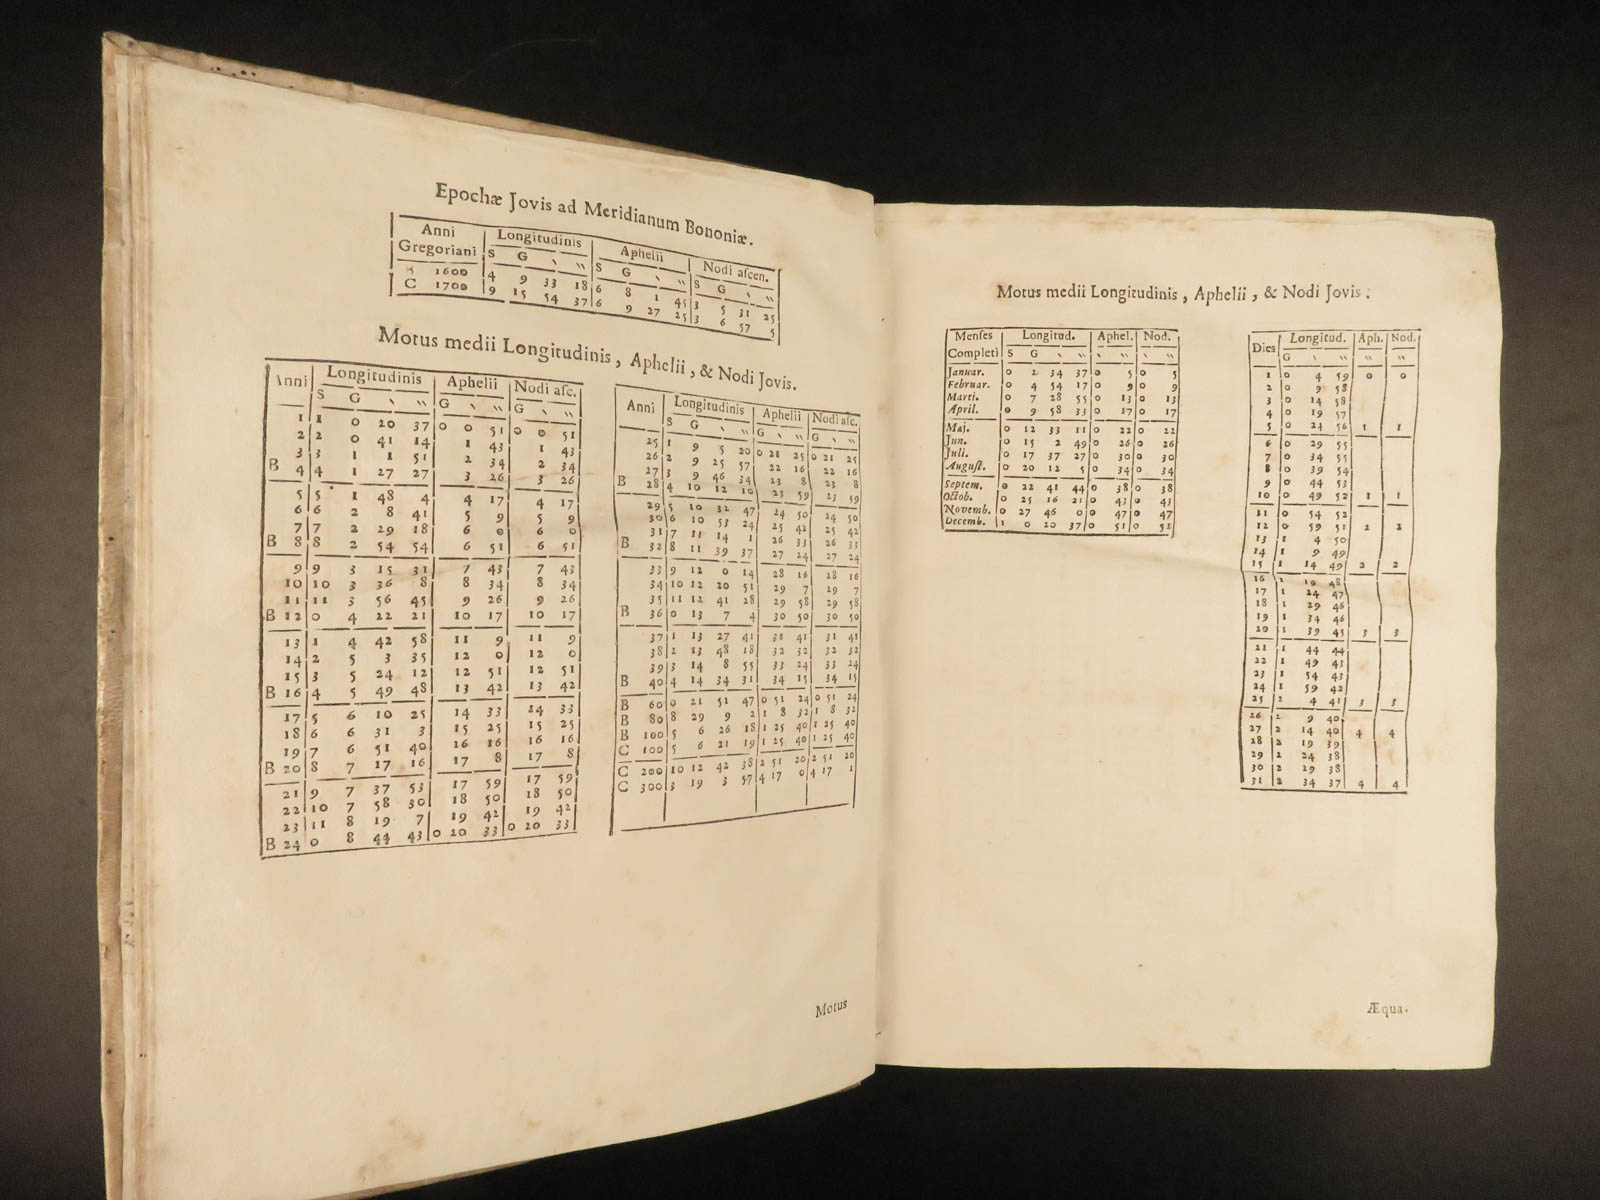 Epochæ Jovis ad Meridianum Bononiæ.
Anni Gregoriani | Longitudinis | Aphelii | Nodi ascen.
S G ˋ ˋˋ | S G ˋ ˋˋ | S G ˋ ˋˋ
B 1600 | 4 9 33 18 | 6 8 1 45 | 3 5 31 25
C 1700 | 9 15 54 37 | 6 9 27 25 | 3 6 57 5
Motus medii Longitudinis, Aphelii, & Nodi Jovis.
Anni | Longitudinis | Aphelii | Nodi asc.
S G ˋ ˋˋ | G ˋ ˋˋ | G ˋ ˋˋ
1 | 1 0 20 37 | 0 0 51 | 0 0 51
2 | 2 0 41 14 | 1 43 | 1 43
3 | 3 1 1 51 | 2 34 | 2 34
B 4 | 4 1 27 27 | 3 26 | 3 26
5 | 5 1 48 4 | 4 17 | 4 17
6 | 6 2 8 41 | 5 9 | 5 9
7 | 7 2 29 18 | 6 0 | 6 0
B 8 | 8 2 54 54 | 6 51 | 6 51
9 | 9 3 15 31 | 7 43 | 7 43
10 | 10 3 36 8 | 8 34 | 8 34
11 | 11 3 56 45 | 9 26 | 9 26
B 12 | 0 4 22 21 | 10 17 | 10 17
13 | 1 4 42 58 | 11 9 | 11 9
14 | 2 5 3 35 | 12 0 | 12 0
15 | 3 5 24 12 | 12 51 | 12 51
B 16 | 4 5 49 48 | 13 42 | 13 42
17 | 5 6 10 25 | 14 33 | 14 33
18 | 6 6 31 3 | 15 25 | 15 25
19 | 7 6 51 40 | 16 16 | 16 16
B 20 | 8 7 17 16 | 17 8 | 17 8
21 | 9 7 37 53 | 17 59 | 17 59
22 | 10 7 58 30 | 18 50 | 18 50
23 | 11 8 19 7 | 19 42 | 19 42
B 24 | 0 8 44 43 | 0 20 33 | 0 20 33
Anni | Longitudinis | Aphelii | Nodi asc.
S G ˋ ˋˋ | G ˋ ˋˋ | G ˋ ˋˋ
25 | 1 9 5 20 | 0 21 25 | 0 21 25
26 | 2 9 25 57 | 22 16 | 22 16
27 | 3 9 46 34 | 23 8 | 23 8
B 28 | 4 10 12 10 | 23 59 | 23 59
29 | 5 10 32 47 | 24 50 | 24 50
30 | 6 10 53 24 | 25 42 | 25 42
31 | 7 11 14 1 | 26 33 | 26 33
B 32 | 8 11 39 37 | 27 24 | 27 24
33 | 9 12 0 14 | 28 16 | 28 16
34 | 10 12 20 51 | 29 7 | 29 7
35 | 11 12 41 28 | 29 58 | 29 58
B 36 | 0 13 7 4 | 30 50 | 30 50
37 | 1 13 27 41 | 31 41 | 31 41
38 | 2 13 48 18 | 32 32 | 32 32
39 | 3 14 8 55 | 33 24 | 33 24
B 40 | 4 14 34 31 | 34 15 | 34 15
B 60 | 0 21 51 47 | 0 51 24 | 0 51 24
B 80 | 8 29 9 2 | 1 8 32 | 1 8 32
B 100 | 5 6 26 18 | 1 25 40 | 1 25 40
C 100 | 5 6 21 19 | 1 25 40 | 1 25 40
C 200 | 10 12 42 38 | 2 51 20 | 2 51 20
C 300 | 3 19 3 57 | 4 17 0 | 4 17 1
Motus
Motus medii Longitudinis, Aphelii, & Nodi Jovis.
Menses Completi | Longitud. | Aphel. | Nod.
S G ˋ ˋˋ | ˋ ˋˋ | ˋ ˋˋ
Januar. | 0 2 34 37 | 0 5 | 0 5
Februar. | 0 4 54 17 | 0 9 | 0 9
Marti. | 0 7 28 55 | 0 13 | 0 13
April. | 0 9 58 33 | 0 17 | 0 17
Maj. | 0 12 33 11 | 0 22 | 0 22
Jun. | 0 15 2 49 | 0 26 | 0 26
Juli. | 0 17 37 27 | 0 30 | 0 30
August. | 0 20 12 5 | 0 34 | 0 34
Septem. | 0 22 41 44 | 0 38 | 0 38
Octob. | 0 25 16 21 | 0 43 | 0 43
Novemb. | 0 27 46 0 | 0 47 | 0 47
Decemb. | 1 0 20 37 | 0 51 | 0 51
Dies | Longitud. | Aph. | Nod.
G ˋ ˋˋ | ˋˋ | ˋˋ
1 | 0 4 59 | 0 | 0
2 | 0 9 58
3 | 0 14 58
4 | 0 19 57
5 | 0 24 56 | 1 | 1
6 | 0 29 55
7 | 0 34 55
8 | 0 39 54
9 | 0 44 53
10 | 0 49 52 | 1 | 1
11 | 0 54 52
12 | 0 59 51 | 2 | 2
13 | 1 4 50
14 | 1 9 49
15 | 1 14 49 | 2 | 2
16 | 1 19 48
17 | 1 24 47
18 | 1 29 46
19 | 1 34 46
20 | 1 39 45 | 3 | 3
21 | 1 44 44
22 | 1 49 43
23 | 1 54 43
24 | 1 59 42
25 | 2 4 41 | 3 | 3
26 | 2 9 40
27 | 2 14 40 | 4 | 4
28 | 2 19 39
29 | 2 24 38
30 | 2 29 38
31 | 2 34 37 | 4 | 4
Æqua.